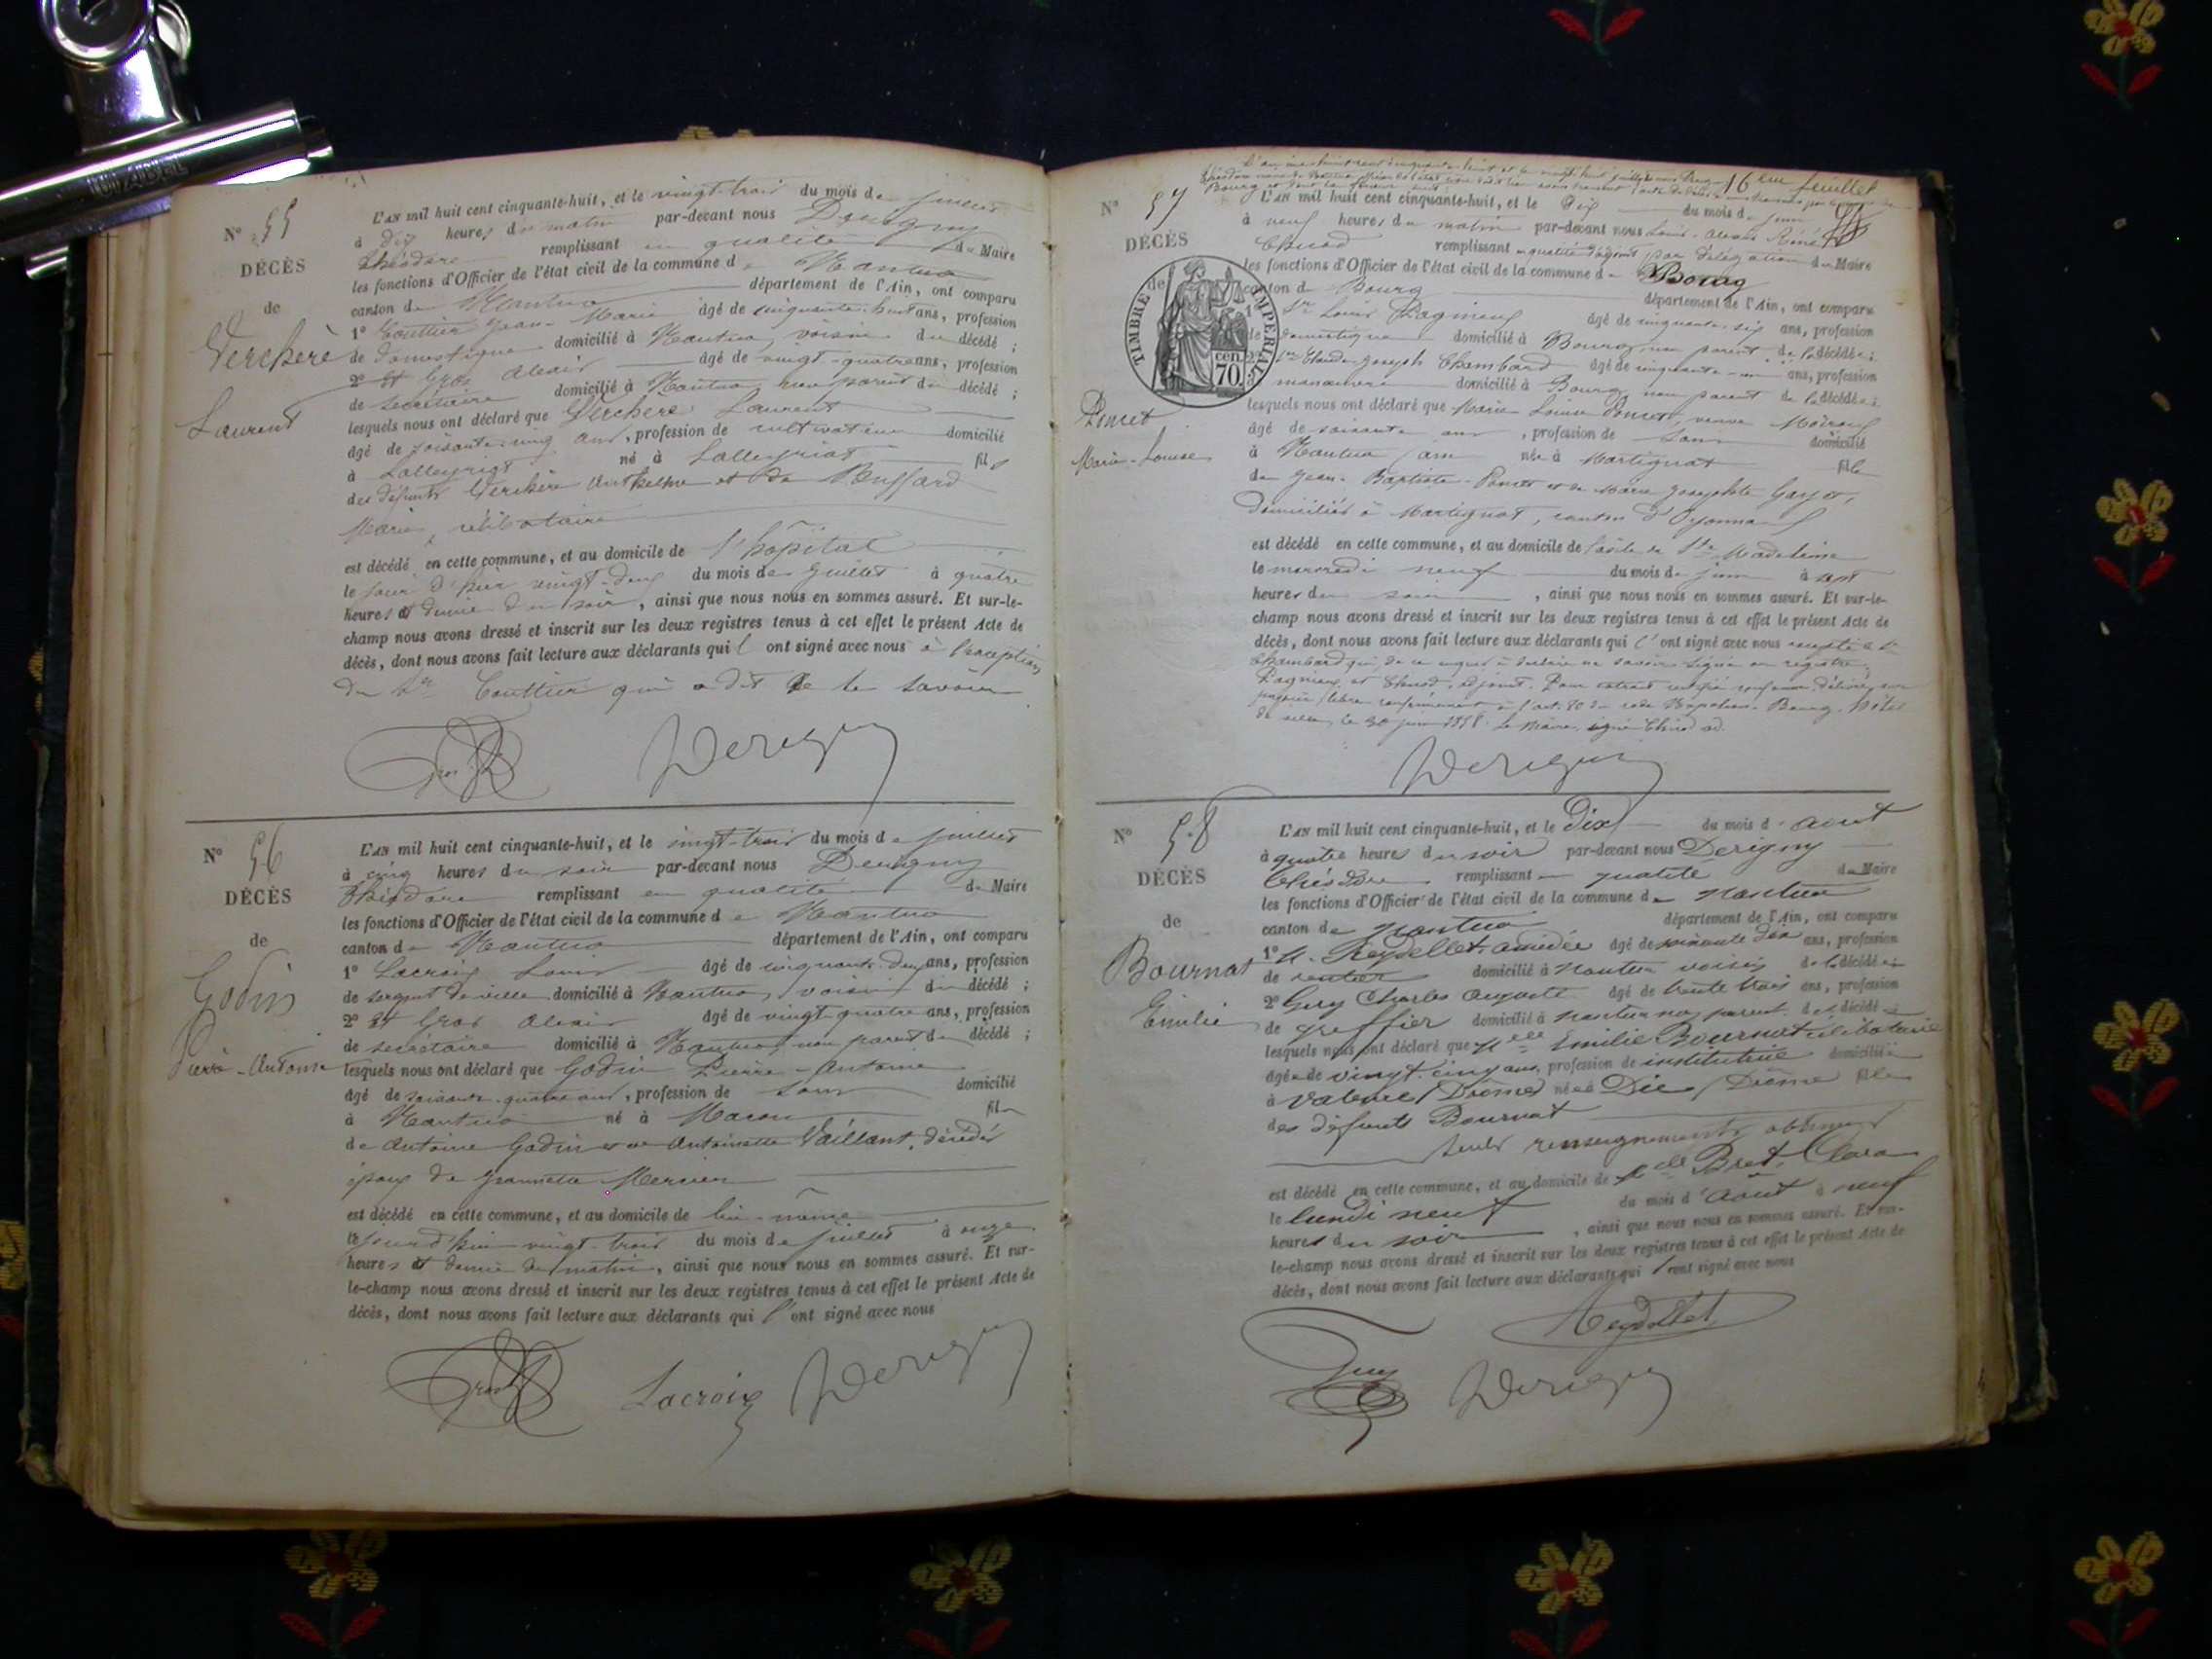 N° 55
DÉCÈS
de
Verchère
Laurent
L'AN mil huit cent cinquante-huit, et le vingt-trois du mois de juillet
à dix heures du matin par-devant nous Derigny
Théodore remplissant en qualité de Maire
les fonctions d'Officier de l'état civil de la commune de Nantua
canton de Nantua département de l'Ain, ont comparu
1° Jean-Marie âgé de cinquante-huit ans, profession
de domestique domicilié à Nantua, voisin du décédé ;
2° Gros Alexis âgé de vingt-quatre ans, profession
de secrétaire domicilié à Nantua, non parent du décédé ;
lesquels nous ont déclaré que Verchère Laurent
âgé de soixante-cinq ans, profession de cultivateur domicilié
à Lalleyriat né à Lalleyriat fils
des défunts Verchère Anthelme et de Buffard
Marie, célibataire
est décédé en cette commune, et au domicile de l'hôpital
le jour d'hier vingt-deux du mois de juillet à quatre
heures et demie du soir, ainsi que nous nous en sommes assuré. Et sur-le-
champ nous avons dressé et inscrit sur les deux registres tenus à cet effet le présent Acte de
décès, dont nous avons fait lecture aux déclarants qui l'ont signé avec nous à l'exception
du Sr qui a dit ne le savoir
Gros Derigny
N° 56
DÉCÈS
de
Godin
Pierre-Antoine
L'AN mil huit cent cinquante-huit, et le vingt-trois du mois de juillet
à cinq heures du soir par-devant nous Derigny
Théodore remplissant en qualité de Maire
les fonctions d'Officier de l'état civil de la commune de Nantua
canton de Nantua département de l'Ain, ont comparu
1° Lacroix Louis âgé de cinquante-deux ans, profession
de sergent de ville domicilié à Nantua, voisin du décédé ;
2° Gros Alexis âgé de vingt-quatre ans, profession
de secrétaire domicilié à Nantua, non parent du décédé ;
lesquels nous ont déclaré que Godin Pierre-Antoine
âgé de soixante-quatre ans, profession de sans domicilié
à Nantua né à Macon fils
de Antoine Godin et de Antoinette Vaillant, décédés
époux de Jeannette Mercier
est décédé en cette commune, et au domicile de lui-même
le jourd'hui vingt-trois du mois de juillet à onze
heures et demie du matin, ainsi que nous nous en sommes assuré. Et sur-
le-champ nous avons dressé et inscrit sur les deux registres tenus à cet effet le présent Acte de
décès, dont nous avons fait lecture aux déclarants qui l'ont signé avec nous
Gros Lacroix Derigny
16eme feuillet
L'an mil huit cent cinquante-huit et le vingt huit juillet
N° 57
DÉCÈS
de
TIMBRE IMPÉRIAL
70 cen.
Poncet
Marie-Louise
L'AN mil huit cent cinquante-huit, et le dix du mois de juin
à neuf heures du matin par-devant nous Louis-Alexis
Chicod remplissant en qualité d'adjoint par délégation du Maire
les fonctions d'Officier de l'état civil de la commune de Bourg
canton de Bourg département de l'Ain, ont comparu
1° Sr Louis âgé de cinquante-six ans, profession
de domestique domicilié à Bourg, non parent de la décédée ;
2° Sr Claude Joseph Chambard âgé de cinquante-un ans, profession
de manœuvre domicilié à Bourg, non parent de la décédée ;
lesquels nous ont déclaré que Marie Louise Poncet, veuve
âgé de soixante ans, profession de sans domicilié
à Nantua (ain née à Martignat fille
de Jean-Baptiste Poncet et de Marie Josephte
domiciliés à Martignat, canton d'Oyonnax
est décédé en cette commune, et au domicile de l'asile de Ste Madeleine
le mercredi neuf du mois de juin à sept
heures du soir, ainsi que nous nous en sommes assuré. Et sur-le-
champ nous avons dressé et inscrit sur les deux registres tenus à cet effet le présent Acte de
décès, dont nous avons fait lecture aux déclarants qui l'ont signé avec nous excepté le Sr
Chambard qui, de ce enquis a déclaré ne savoir signer au registre,
adjoint. Pour extrait certifié conforme délivré sur
papier libre conformément à l'art. 80 du code Napoléon. Bourg, hôtel
de ville, le 30 juin 1858. Le Maire, signé
Derigny
N° 58
DÉCÈS
de
Bournat
Emilie
L'AN mil huit cent cinquante-huit, et le Dix du mois d'août
à quatre heures du soir par-devant nous Derigny
Théodore remplissant en qualité de Maire
les fonctions d'Officier de l'état civil de la commune de Nantua
canton de Nantua département de l'Ain, ont comparu
1° M. Reydellet amédée âgé de soixante dix ans, profession
de rentier domicilié à Nantua voisin de la décédée
2° Guy Charles Auguste âgé de trente trois ans, profession
de greffier domicilié à Nantua non parent de la décédée
lesquels nous ont déclaré que Melle Emilie Bournat célibataire
âgée de vingt-cinq ans, profession de institutrice domiciliée
à Valence (Drôme) née à Die (Drôme fille
des défunts Bournat
seuls renseignements obtenus
est décédé en cette commune, et au domicile de Melle Bret Clara
le lundi neuf du mois d'août à neuf
heures du soir, ainsi que nous nous en sommes assuré. Et sur-
le-champ nous avons dressé et inscrit sur les deux registres tenus à cet effet le présent Acte de
décès, dont nous avons fait lecture aux déclarants qui l'ont signé avec nous
Reydellet
Guy Derigny